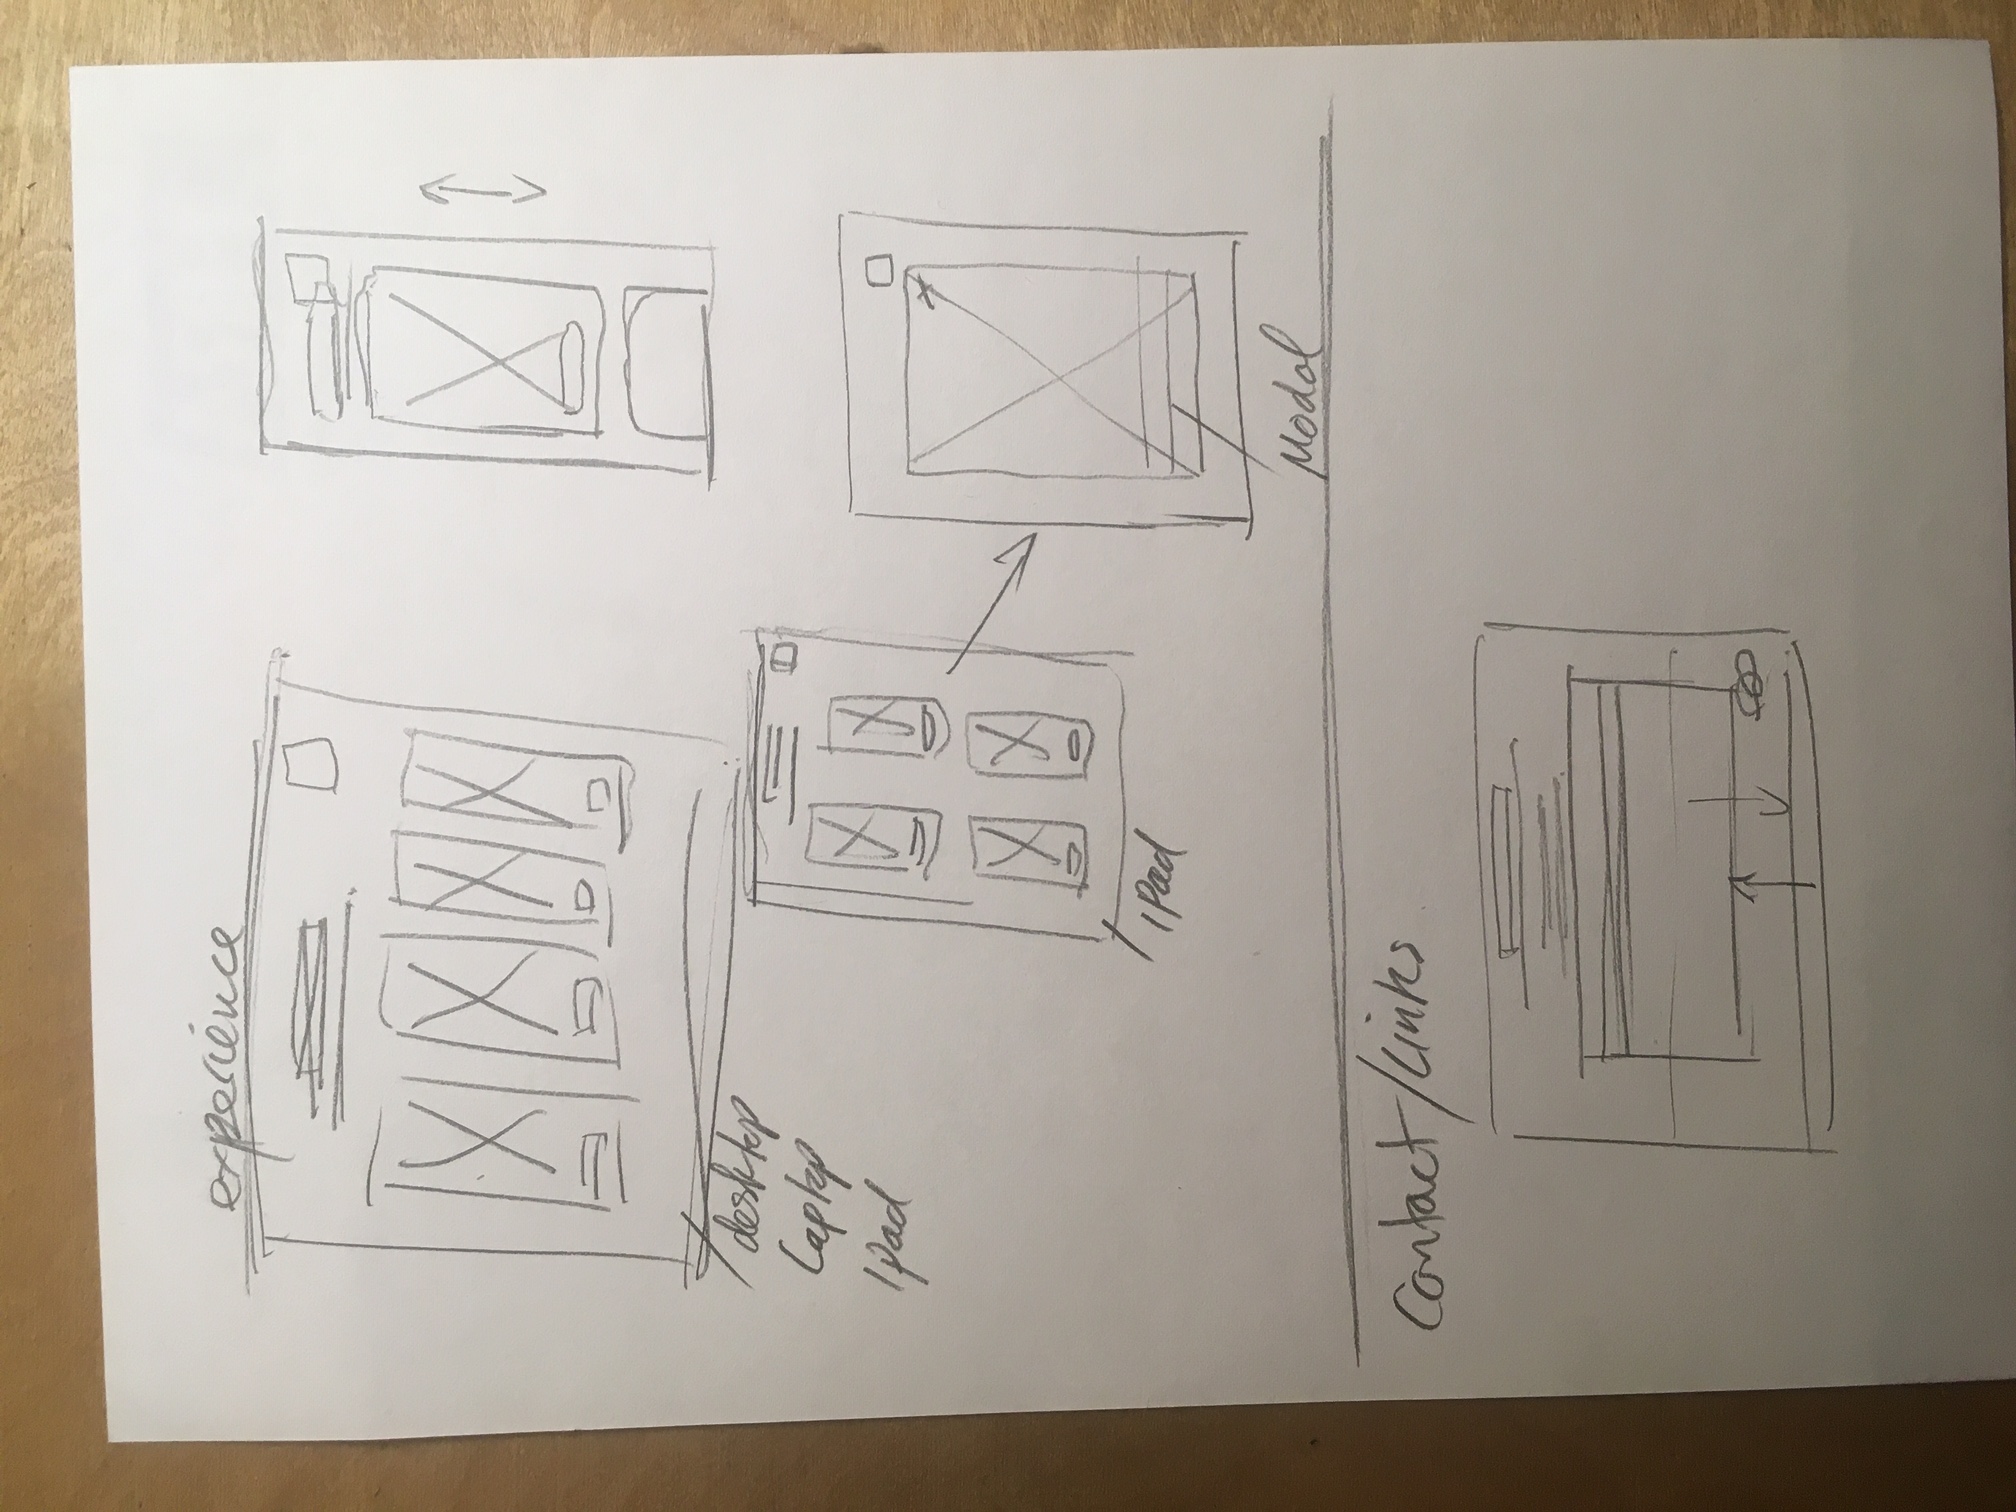 experience
desktop
Laptop
iPad
iPad
Modal
Contact/Links